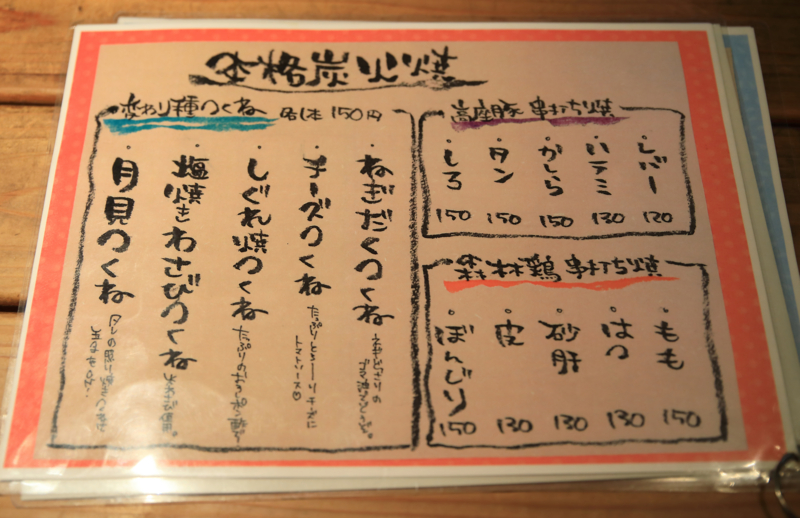 本格炭火焼
高座豚 串打ち焼
・レバー 120
・ハラミ 130
・かしら 150
・タン 150
・しろ 150
森林鶏 串打ち焼
・もも 150
・はつ 130
・砂肝 130
・皮 130
・ぼんじり 150
変わり種つくね 各1本 150円
・ねぎだくつくね
・チーズつくね たっぷりとろーりチーズに
トマトソース
・しぐれ焼つくね
・塩焼きわさびつくね
・月見つくね